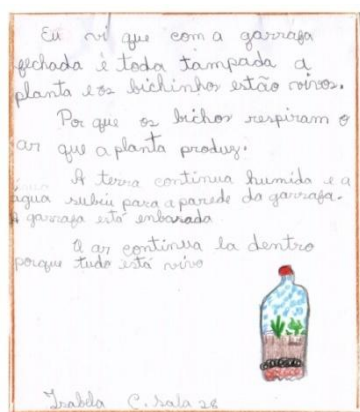 Eu vi que com a garrafa
fechada è toda tampada a
planta e os bichinhos estão vivos.
Por que os bichos respiram o
ar que a planta produz.
A terra continua humida e a
água subiu para a parede da garrafa.
A garrafa está enbasada
O ar continua la dentro
porque tudo está vivo
Isabela C. sala 28